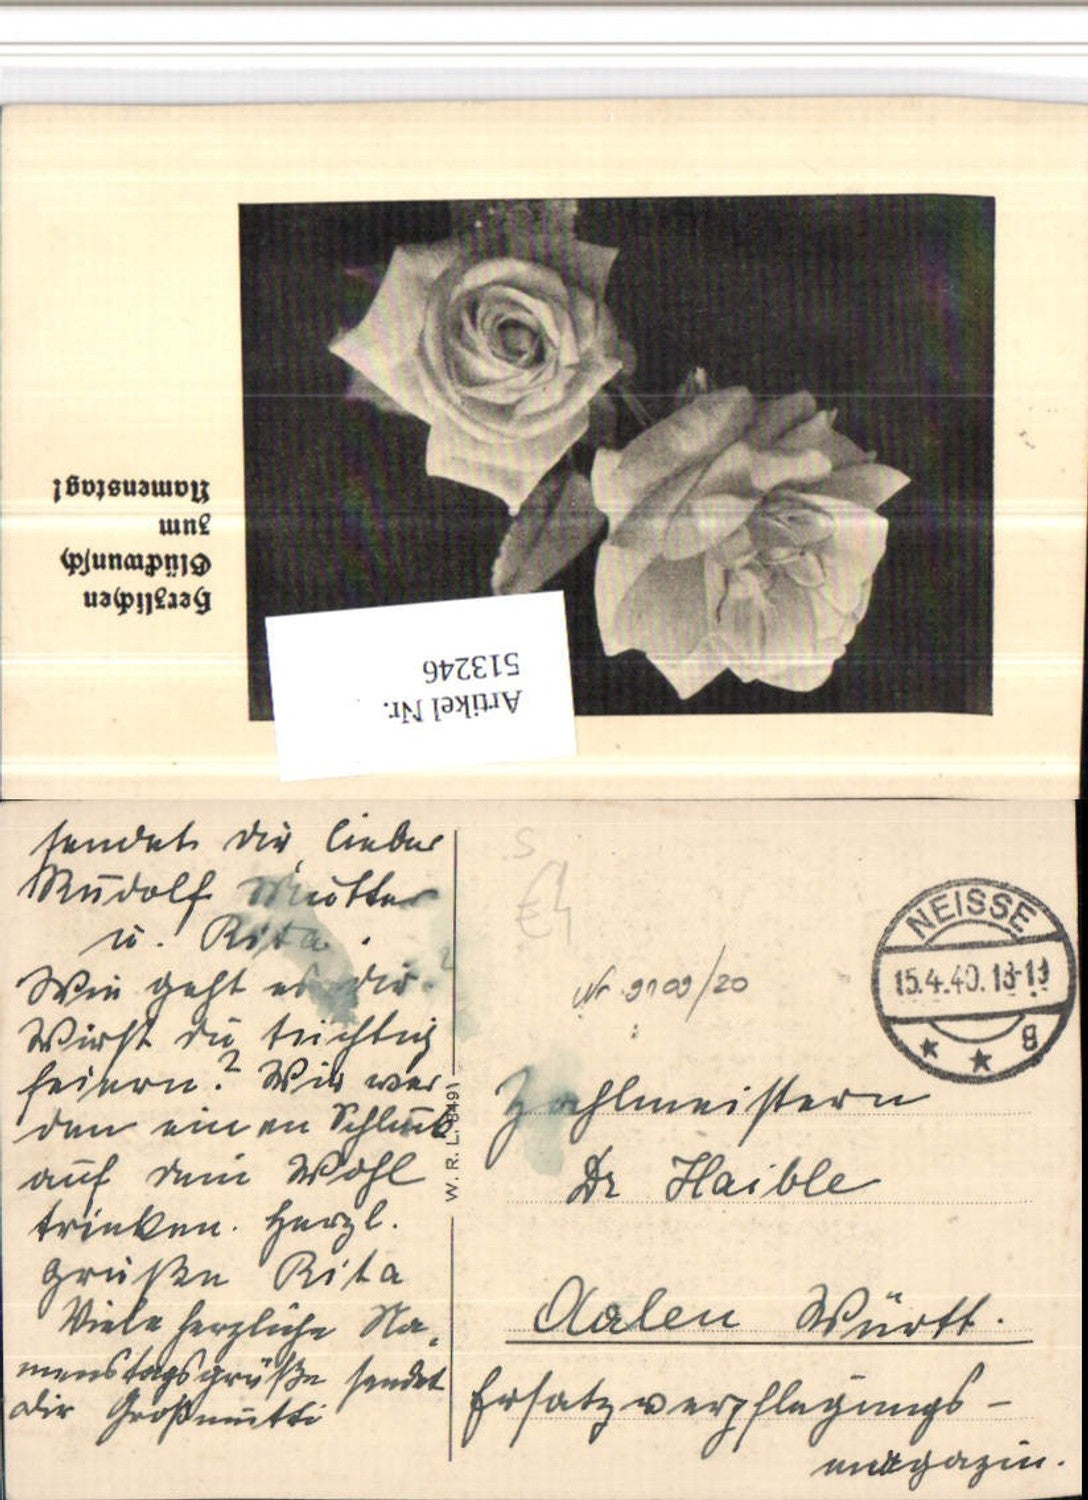 Herzlichen
Glückwunsch
zum
Namenstag!
Artikel Nr.
513246
sendet dir lieber
Rudolf Mutter
u. Rita.
Wie geht es dir?
Wirst du tüchtig
feiern? Wir wer-
den einen Schluck
auf dein Wohl
trinken. Herzl.
Grüße Rita
Viele herzliche Na-
menstagsgrüße sendet
dir Großmutti
W. R. L. 8491
NEISSE
15.4.40.18-19
g
Nr. 9109/20
Zahlmeistern
Dr Haible
Aalen Württ.
Ersatzverpflegungs-
magazin.